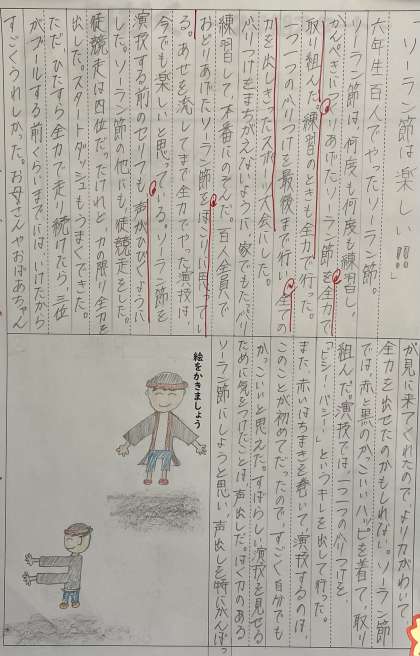 「ソーラン節は楽しい!!!」
六年生百人でやったソーラン節。
ソーラン節は何度も何度も練習し、
かんぺきにつくりあげたソーラン節を全力で
取り組んだ。練習のときも全力で行った。
一つ一つのふりつけを最後まで行い、全ての
力を出しきったスポーツ大会にした。
ふりつけをまちがえないように家でもたっぷり
練習して本番にのぞんだ。百人全員で
おどりあげたソーラン節をほこりに思ってい
る。あせを流してまで全力でやった演技は、
今でも楽しいと思っている。ソーラン節を
演技する前のセリフも声がひびくように
した。ソーラン節の他にも徒競走をした。
徒競走は四位だったけれど、力の限り全力を
出した。スタートダッシュもうまくできた。
ただ、ひたすら全力で走り続けたら、三位
がゴールする前くらいまでには、いけたから
すごくうれしかった。お母さんやおばあちゃん
が見に来てくれたので、より力がわいて、
全力を出せたのかもしれない。ソーラン節
では、赤と黒のかっこいいハッピを着て、取り
組んだ。演技では一つ一つのふりつけを、
「ビシ―バシ―」というキレを出して行った。
また、赤いはちまきを巻いて、演技するのは、
このことが初めてだったので、すごく自分でも
かっこいいと思えた。すばらしい演技を見せる
ために気をつけたことは、声出しだ。はく力のある
ソーラン節にしようと思い、声出しを特にがんばっ
絵をかきましょう